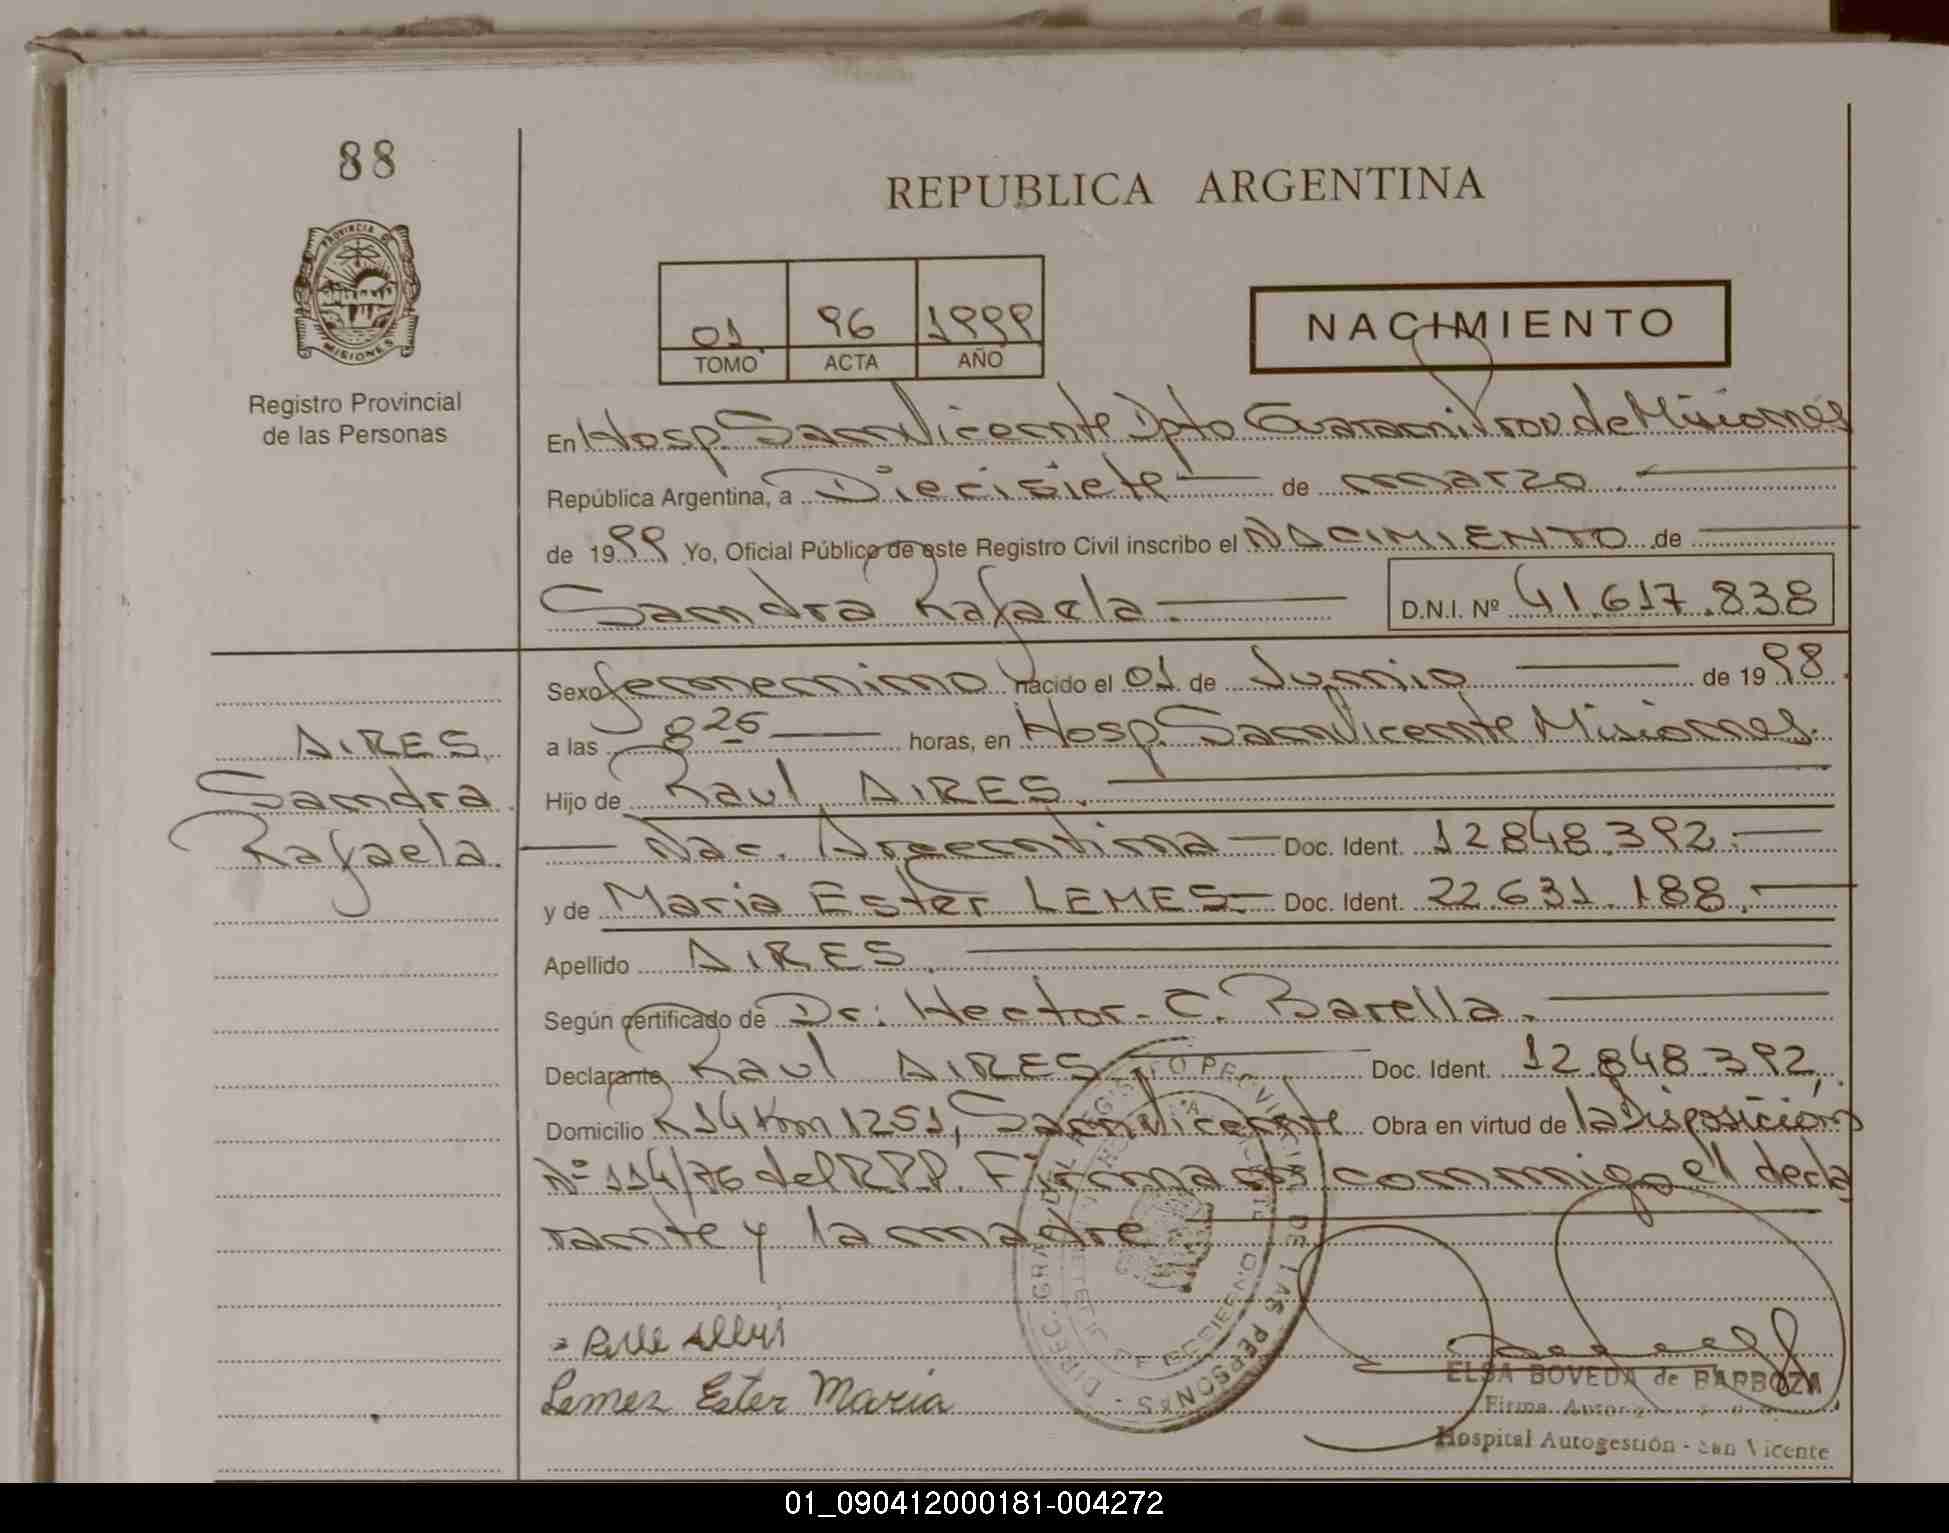 88
REPUBLICA ARGENTINA
PROVINCIA D
MISIONES
Registro Provincial
de las Personas
01 96 1999
TOMO ACTA AÑO
NACIMIENTO
En Hosp. San Vicente Dpto Guarani Prov de Misiones
República Argentina, a Diecisiete de marzo
de 1999 Yo, Oficial Público de este Registro Civil inscribo el NACIMIENTO de
Sandra Rafaela. D.N.I. Nº 41.617.838
Sexo femenino nacido el 01 de Junio de 1998.
a las 8 25 horas, en Hosp. San Vicente Misiones.
Hijo de Raul AIRES.
Nac. Argentina Doc. Ident. 12.848.392.
y de Maria Ester LEMES. Doc. Ident. 22.631.188.
Apellido AIRES.
Según certificado de Dr: Hector. C. Barella.
Declarante Raul AIRES Doc. Ident. 12.848.392,
Domicilio R 14 Km 1251, San Vicente Obra en virtud de la Disposición
Nº 114/76 del R.P.P. Firman conmigo el decla
rante y la madre
AIRES
Sandra
Rafaela.
DIREC. GRAL DEL REGISTRO PROVINCIAL DE LAS PERSONAS
Lemes Ester Maria
ELSA BOVEDA de BARBOZA
Firma
Hospital Autogestión - San Vicente
01_090412000181-004272